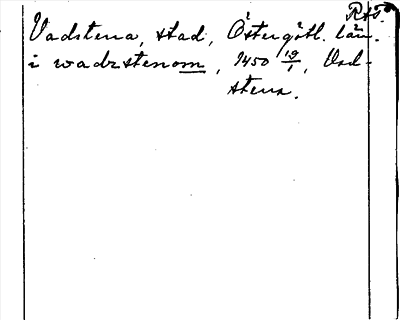 RAP.
Vadstena, stad, Östergötl. län.
i wadzstenom, 1450 19/1, Vad-
stena.